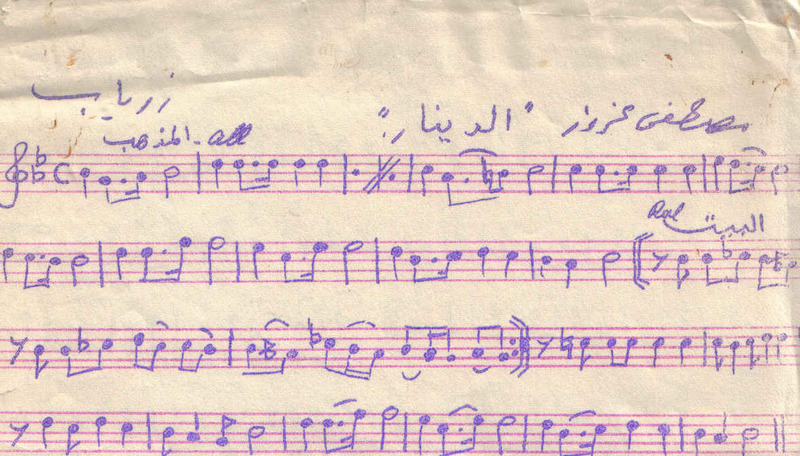 زرياب
مصطفى عزوز "الدينار"
المذهب - all
البيت Ral